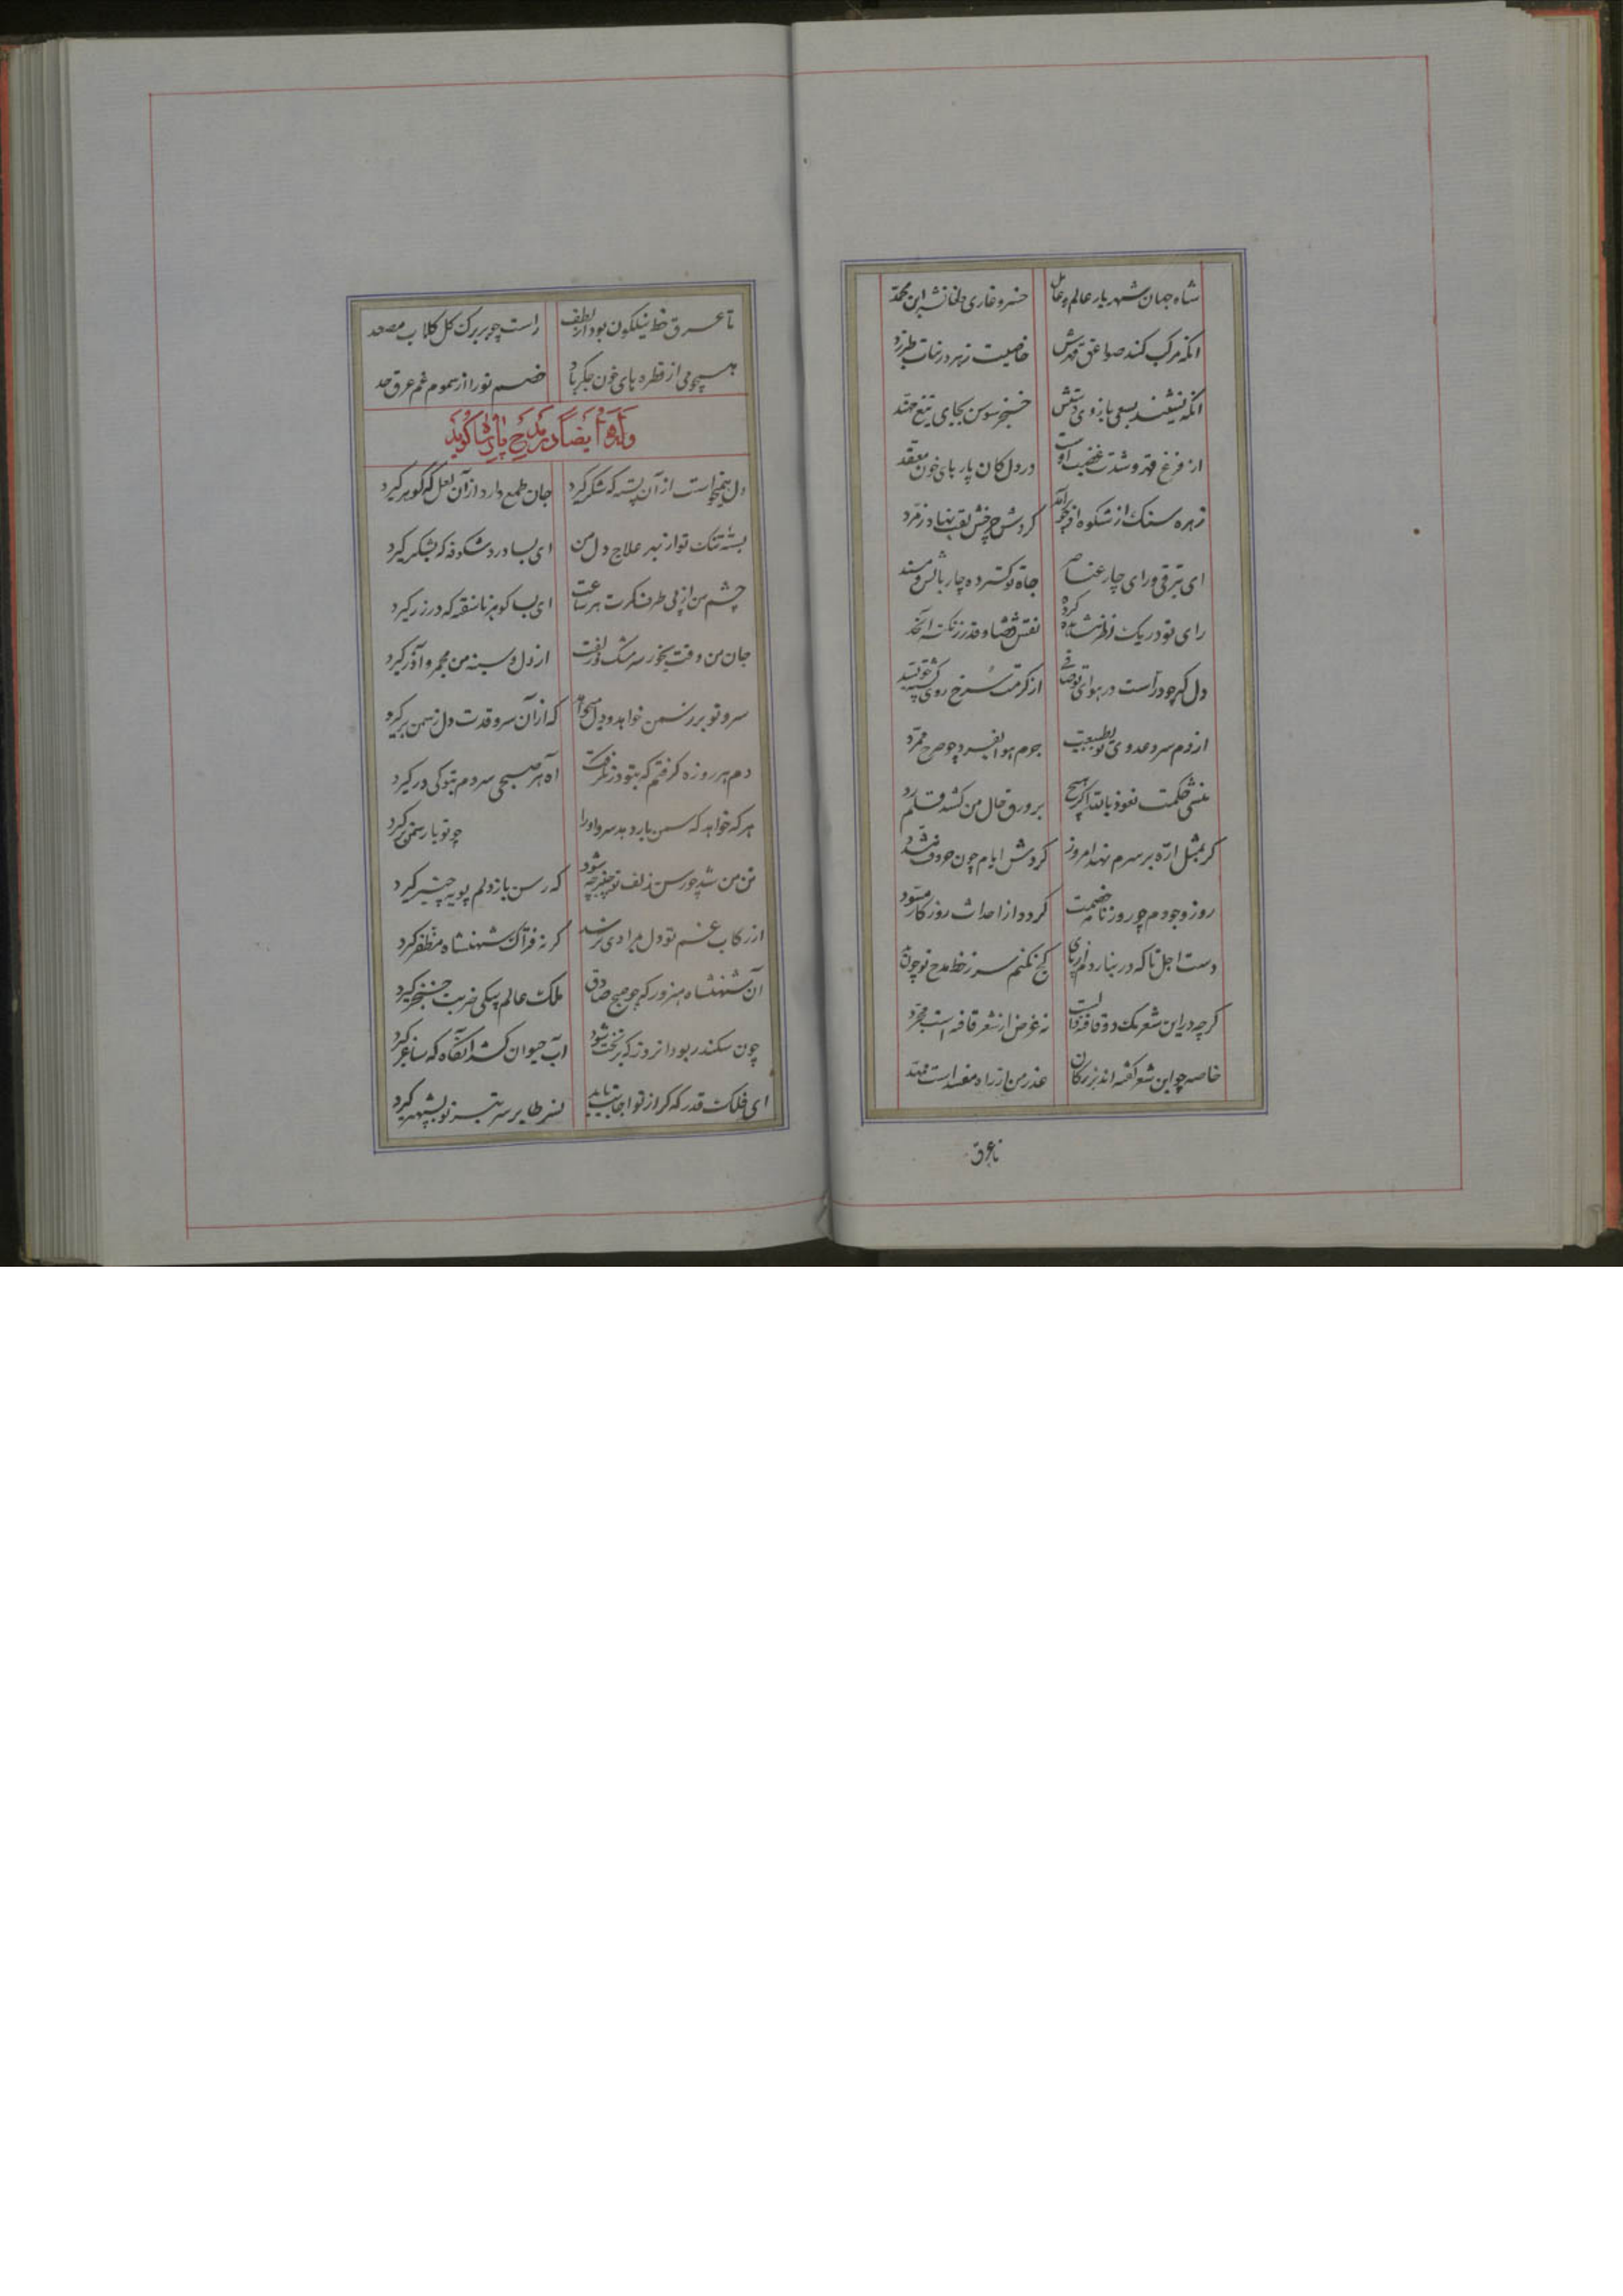 شاه جهان شهریار عالم و عادل خسرو غازی طغانشه ابن محمد
آنکه مرکب کند صواعق قهرش خاصیت زهر در نبات طبرزد
آنکه نشیند بسعی بازوی دستش خنجر سوسن بجای تیغ مهند
از فزع قهر و شدت غضب اوست در دل کان پارهای خون معقد
زهره سنک از شکوه او بخو آمد کردش چرخش لقب نهاد زمرد
ای بترقی ورای چار عناصر جاه تو کسترده چار بالش و مسند
رای تو در یک نظر مشاهده کرده نقش قضا و قدر ز تخته ابجد
دل کرچه در هوای تو صافی از کرمت سرخ روی کشت
از دم سرد عدوی تو بطبیعت جرم هوا بفسرد چو صرح ممرد
منشی حکمت نعوذ بالله اکر هیچ بر ورق حال من کشد قلم رد
کر بمثل اره بر سرم نهد امروز کردش ایام چون حروف مشدد
روز وجودم چو روز نامه خصمت کردد از احداث روزکار مسود
دست اجل تا که در نیارد از پای کج نکنم سر ز خط مدح تو چون مد
کرچه در این شعر یک دو قافیه دالست نه غرض از شعر قافیه است مجرد
خاصه چو این شعر کفته اند بزرکان عذر من از راه مفسد است ممهد
تا عرق
تا عرق خط نیلکون بود از لطف راست چو بر برک کل کلاب مصعد
همچو می از قطره های خون جکر باد خصم تو را از سموم غم عرق خد
وله ایضا در مدح پادشاه کوید
دل نمیخواست از آن پسته که شکر کیرد جان طمع دارد از آن لعل که کوهر کیرد
پسته تنک تو از بهر علاج دل من ای بسا درد شکوفه که بشکر کیرد
چشم من از پی طرف کمرت هر ساعت ای بسا کوهر ناسفته که در زر کیرد
جان من وقت بخور سر مشک زلفت از دل و سینه من مجمر و آذر کیرد
سرو تو بر ز سمن خواهد و دل میخواهد که از آن سرو قدت دل ز سمن بر کیرد
دم هر روزه کرفتم که بتو در نکرفت آه هر صبحی سردم بتو کی در کیرد
هر که خواهد که سمن بار دهد سرو او را چو تو یار سمنبر کیرد
تن من شد چو رسن زلف تو چنبر چه شود که رسن باز دلم پویه چنبر کیرد
از رکاب غم تو دل بمرادی نرسد کر نه فتراک شهنشاه مظفر کیرد
آن شهنشاه هنرور که چو صبح صادق ملک عالم بیکی ضربت خنجر کیرد
چون سکندر بود آنروز که بر تخت شود آب حیوان کشد آنکاه که ساغر کیرد
ای فلک قدر که کر از تو اجابت یابد نسر طایر سر تیر تو بشهپر کیرد